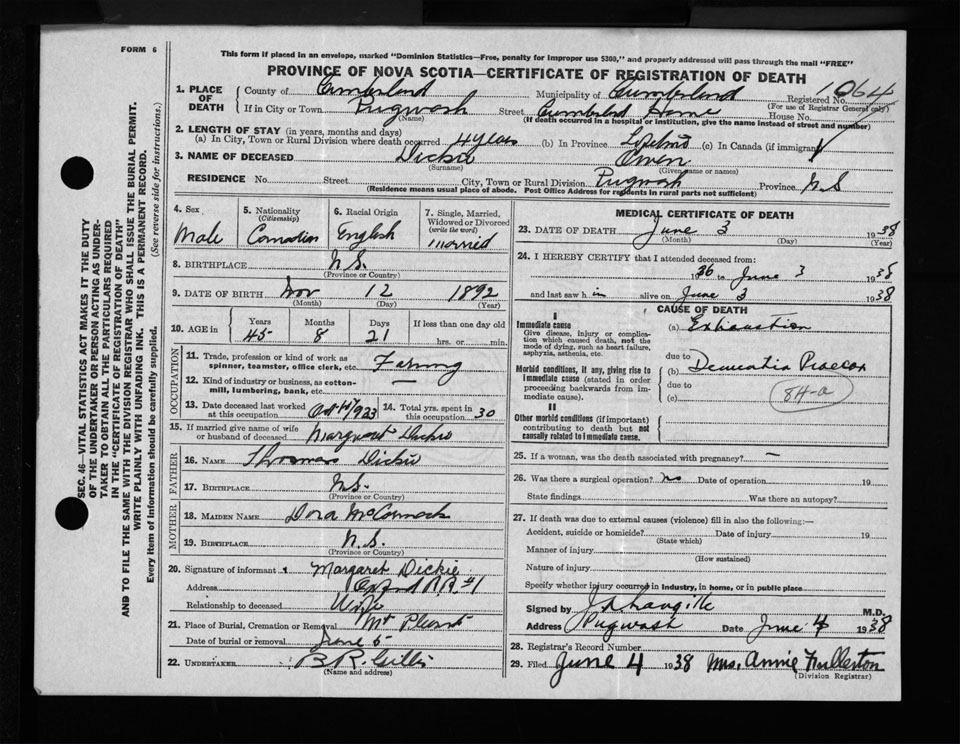 FORM 6
This form if placed in an envelope, marked "Dominion Statistics—Free, penalty for improper use $300," and properly addressed will pass through the mail "FREE"
PROVINCE OF NOVA SCOTIA—CERTIFICATE OF REGISTRATION OF DEATH
1. PLACE OF DEATH
County of Cumberland Municipality of Cumberland Registered No. 1064
(For use of Registrar General only)
If in City or Town Pugwash Street Cumberland Home House No.
(Name) (If death occurred in a hospital or institution, give the name instead of street and number)
2. LENGTH OF STAY (in years, months and days)
(a) In City, Town or Rural Division where death occurred (b) In Province (c) In Canada (if immigrant)
3. NAME OF DECEASED Dickie Owen
(Surname) (Given name or names)
RESIDENCE No. Street City, Town or Rural Division Pugwash Province N.S
(Residence means usual place of abode. Post Office Address for residents in rural parts not sufficient)
4. Sex Male
5. Nationality (Citizenship) Canadian
6. Racial Origin English
7. Single, Married, Widowed or Divorced (write the word) married
8. BIRTHPLACE N.S.
(Province or Country)
9. DATE OF BIRTH Nov 12 1892
(Month) (Day) (Year)
10. AGE in Years Months Days If less than one day old
45 8 21 hrs. or min.
OCCUPATION
11. Trade, profession or kind of work as spinner, teamster, office clerk, etc.
12. Kind of industry or business, as cotton-mill, lumbering, bank, etc. —
13. Date deceased last worked at this occupation 1923
14. Total yrs. spent in this occupation 30
15. If married give name of wife or husband of deceased Margaret Dickie
FATHER
16. NAME Thomas Dickie
17. BIRTHPLACE N.S.
(Province or Country)
MOTHER
18. MAIDEN NAME Dora McCormack
19. BIRTHPLACE N.S.
(Province or Country)
20. Signature of informant Margaret Dickie
Address Oxford R.R. #1
Relationship to deceased Wife
21. Place of Burial, Cremation or Removal Mt Pleasant
Date of burial or removal June 5
22. UNDERTAKER B R Gillis
(Name and address)
MEDICAL CERTIFICATE OF DEATH
23. DATE OF DEATH June 3 1938
(Month) (Day) (Year)
24. I HEREBY CERTIFY that I attended deceased from:
1936 to June 3 1938
and last saw him alive on June 3 1938
CAUSE OF DEATH
I
Immediate cause
Give disease, injury or complication which caused death, not the mode of dying, such as heart failure, asphyxia, asthenia, etc.
(a) Exhaustion
due to
Morbid conditions, if any, giving rise to immediate cause (stated in order proceeding backwards from immediate cause).
(b) Dementia Praecox
due to
(c) 84-a
II
Other morbid conditions (if important) contributing to death but not causally related to immediate cause.
25. If a woman, was the death associated with pregnancy? —
26. Was there a surgical operation? no Date of operation 19
State findings Was there an autopsy?
27. If death was due to external causes (violence) fill in also the following:—
Accident, suicide or homicide? Date of injury 19
(State which)
Manner of injury
(How sustained)
Nature of injury
Specify whether injury occurred in industry, in home, or in public place
Signed by M.D.
Address Pugwash Date June 4 1938
28. Registrar's Record Number
29. Filed June 4 1938 Mrs. Annie Fullerton
(Division Registrar)
SEC. 46—VITAL STATISTICS ACT MAKES IT THE DUTY
OF THE UNDERTAKER OR PERSON ACTING AS UNDER-
TAKER TO OBTAIN ALL THE PARTICULARS REQUIRED
IN THE "CERTIFICATE OF REGISTRATION OF DEATH"
AND TO FILE THE SAME WITH THE DIVISION REGISTRAR WHO SHALL ISSUE THE BURIAL PERMIT.
WRITE PLAINLY WITH UNFADING INK. THIS IS A PERMANENT RECORD.
Every item of information should be carefully supplied. (See reverse side for instructions.)